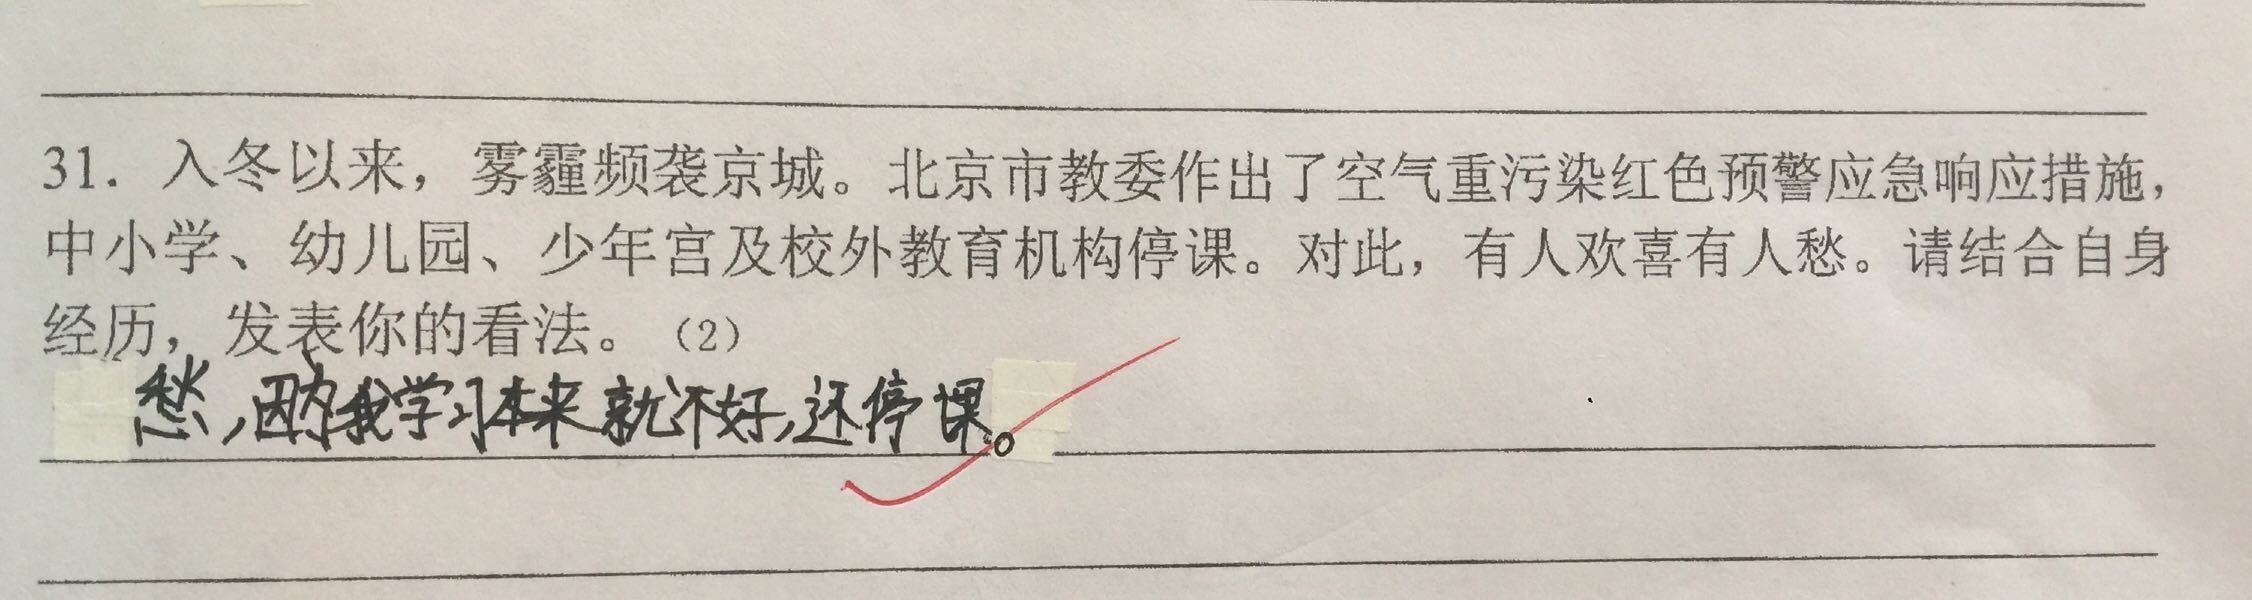 31. 入冬以来，雾霾频袭京城。北京市教委作出了空气重污染红色预警应急响应措施，
中小学、幼儿园、少年宫及校外教育机构停课。对此，有人欢喜有人愁。请结合自身
经历，发表你的看法。（2）
愁，因为我学习本来就不好，还停课。